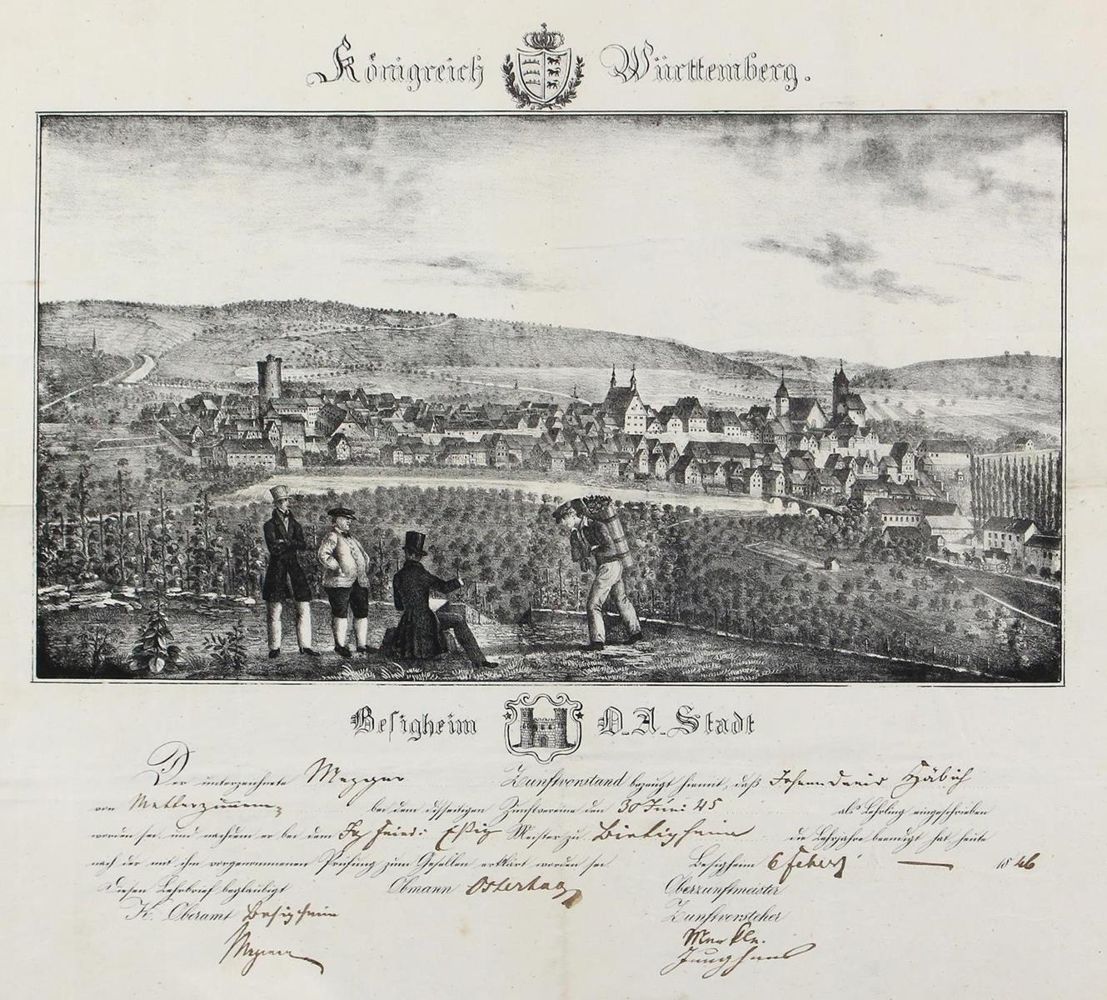 Königreich Württemberg.
Besigheim O. A. Stadt
Der unterzeichnete Mezger Zunftvorstand bezeugt hiemit, daß Johann David Häbich
von Metterzimmern bei dem disseitigen Zunftvereine den 30 Juni 45 als Lehrling eingeschrieben
worden sei und nachdem er bei dem Meister zu Bietigheim die Lehrjahre beendigt hat heute
nach der mit ihm vorgenommenen Prüfung zum Gesellen erklärt worden sei Besigheim 6 Febr. 1846
Diesen Lehrbrief beglaubigt Obmann Osterhag Oberzunftmeister
K. Oberamt Besigheim Zunftvorsteher
Merkle.
Junghans